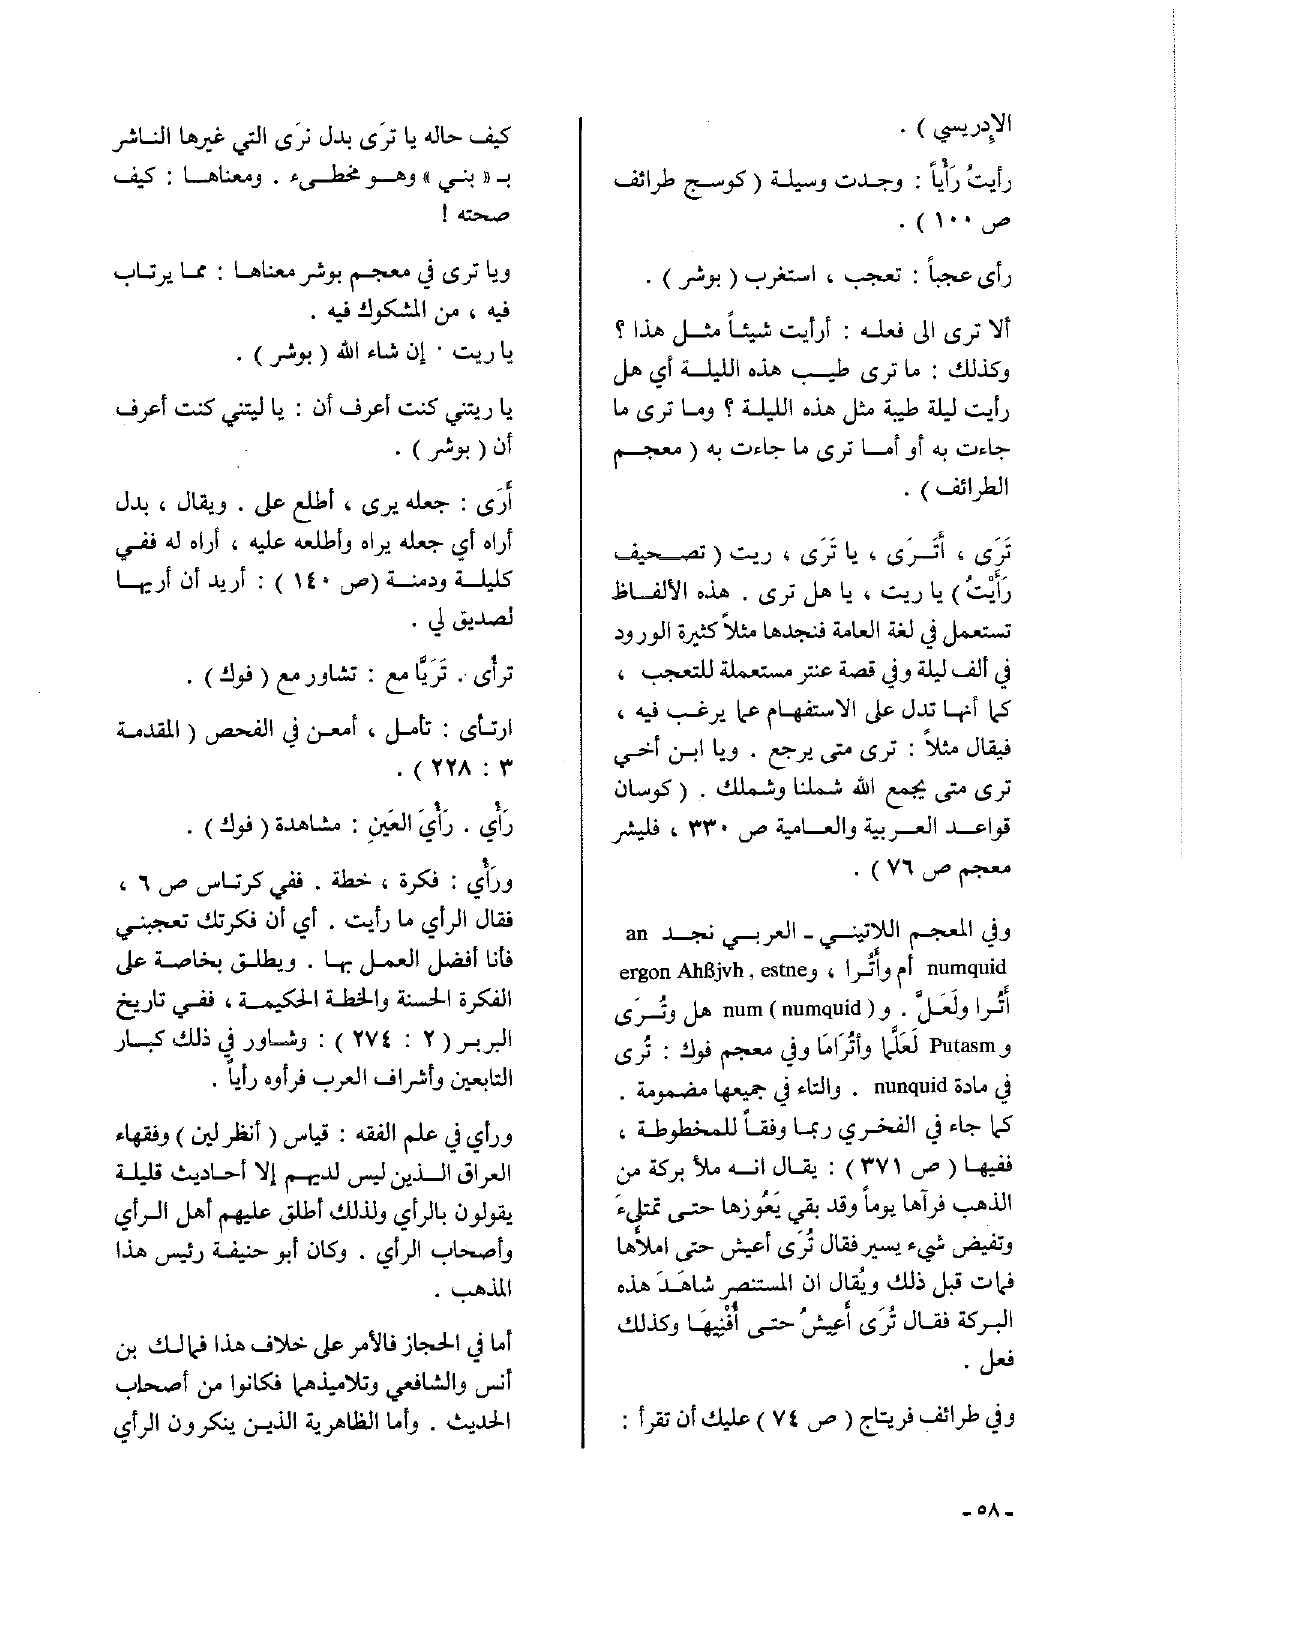 الإدريسي ) .
رأيتُ رَأْياً : وجدت وسيلة ( كوسج طرائف
ص ١٠٠ ) .
رأى عجباً : تعجب ، استغرب ( بوشر ) .
ألا ترى الى فعله : أرأيت شيئاً مثل هذا ؟
وكذلك : ما ترى طيب هذه الليلة أي هل
رأيت ليلة طيبة مثل هذه الليلة ؟ وما ترى ما
جاءت به أو أما ترى ما جاءت به ( معجم
الطرائف ) .
تَرَى ، أَتُرى ، يا تَرَى ، ريت ( تصحيف
رَأَيْتُ ) يا ريت ، يا هل ترى . هذه الالفاظ
تستعمل في لغة العامة فنجدها مثلاً كثيرة الورود
في ألف ليلة وفي قصة عنتر مستعملة للتعجب ،
كما أنها تدل على الاستفهام عما يرغب فيه ،
فيقال مثلاً : ترى متى يرجع . ويا ابن أخي
ترى متى يجمع الله شملنا وشملك . ( كوسان
قواعد العربية والعامية ص ٣٣٠ ، فليشر
معجم ص ٧٦ ) .
وفي المعجم اللاتيني - العربي نجد an
numquid أم وأَتُرا ، وergon Ahßjvh, estne
أَتُرا ولَعَلَّ . و num ( numquid ) هل وتُرَى
وPutasm لَعَلَّما وأتُرَامَا وفي معجم فوك : تُرى
في مادة nunquid . والتاء في جميعها مضمومة .
كما جاء في الفخري ربما وفقاً للمخطوطة ،
ففيها ( ص ٣٧١ ) : يقال انه ملأ بركة من
الذهب فرآها يوماً وقد بقي يَعُوزها حتى تمتلىءَ
وتفيض شيء يسير فقال تُرَى أعيش حتى املأها
فمات قبل ذلك ويُقال ان المستنصر شاهَدَ هذه
البركة فقال تُرَى أَعيشُ حتى أُفْنِيهَا وكذلك
فعل .
وفي طرائف فريتاج ( ص ٧٤ ) عليك أن تقرأ :
كيف حاله يا ترَى بدل ترَى التي غيرها الناشر
بـ « بني » وهو مخطىء . ومعناها : كيف
صحته !
ويا ترى في معجم بوشر معناها : مما يرتاب
فيه ، من المشكوك فيه .
يا ريت . إن شاء الله ( بوشر ) .
يا ريتني كنت أعرف أن : يا ليتني كنت أعرف
أن ( بوشر ) .
أَرَى : جعله يرى ، أطلع على . ويقال ، بدل
أراه أي جعله يراه وأطلعه عليه ، أراه له ففي
كليلة ودمنة ( ص ١٤٠ ) : أريد أن أريها
لصديق لي .
ترأى . تَرَيَّا مع : تشاور مع ( فوك ) .
ارتأى : تأمل ، أمعن في الفحص ( المقدمة
٣ : ٢٢٨ ) .
رَأْي . رَأْيَ العَينِ : مشاهدة ( فوك ) .
ورَأْي : فكرة ، خطة . ففي كرتاس ص ٦ ،
فقال الرأي ما رأيت . أي أن فكرتك تعجبني
فأنا أفضل العمل بها . ويطلق بخاصة على
الفكرة الحسنة والخطة الحكيمة ، ففي تاريخ
البربر ( ٢ : ٢٧٤ ) : وشاور في ذلك كبار
التابعين وأشراف العرب فرأوه رأياً .
ورأي في علم الفقه : قياس ( أنظر لين ) وفقهاء
العراق الذين ليس لديهم إلا أحاديث قليلة
يقولون بالرأي ولذلك أطلق عليهم أهل الرأي
وأصحاب الرأي . وكان أبو حنيفة رئيس هذا
المذهب .
أما في الحجاز فالأمر على خلاف هذا فمالك بن
أنس والشافعي وتلاميذهما فكانوا من أصحاب
الحديث . وأما الظاهرية الذين ينكرون الرأي
- ٥٨ -